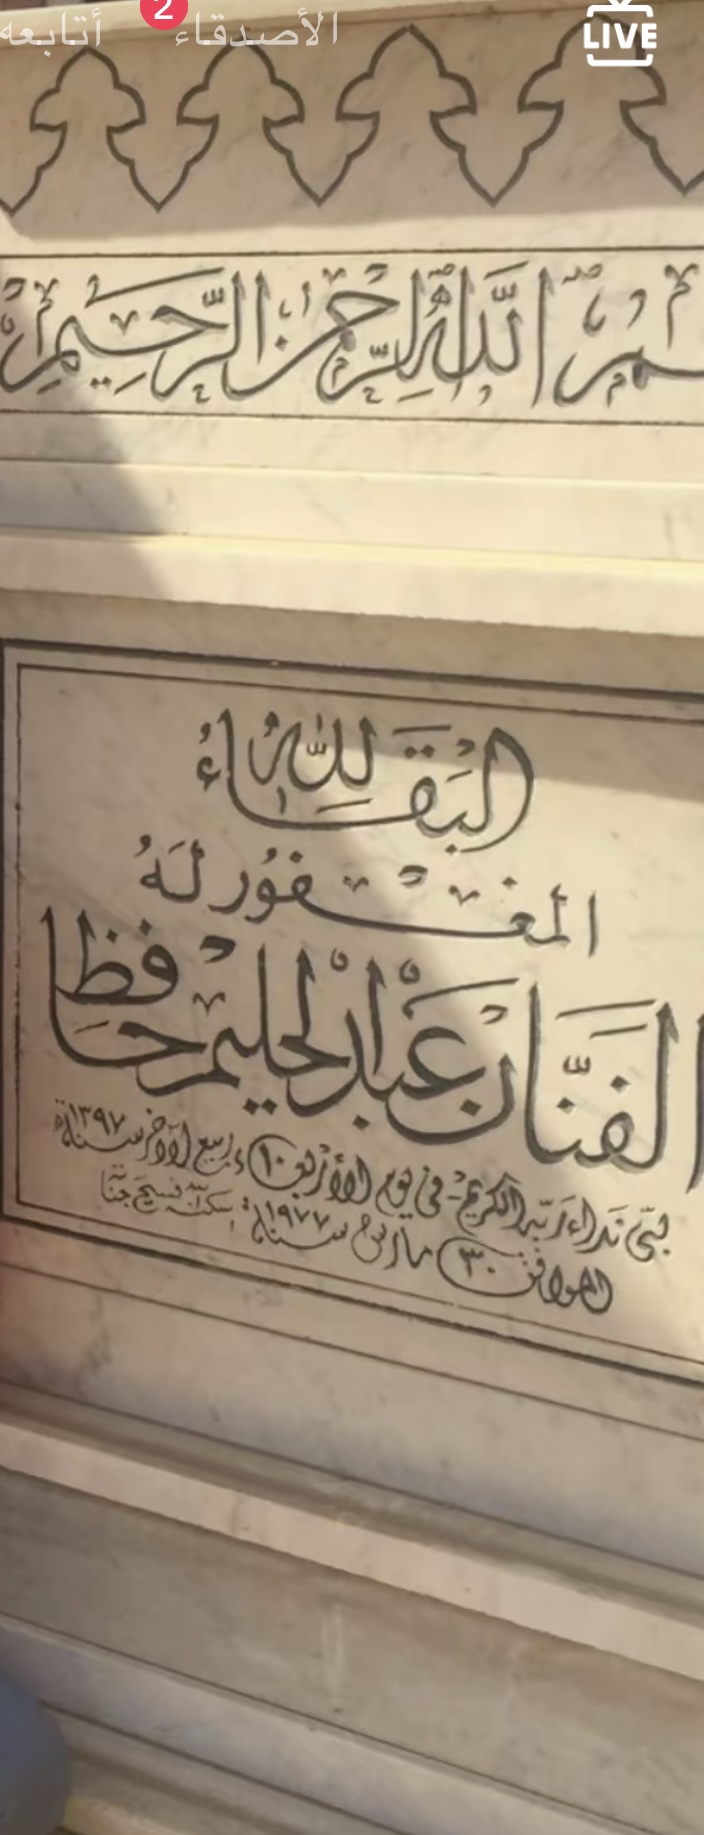 أتابعه الأصدقاء 2 LIVE
بسم الله الرحمن الرحيم
البقاء لله
المغفور له
الفنان عبد الحليم حافظ
لبى نداء ربه الكريم في يوم الأربعاء ١٠ ربيع الآخر سنة ١٣٩٧
الموافق ٣٠ مارس سنة ١٩٧٧ أسكنه الله فسيح جناته